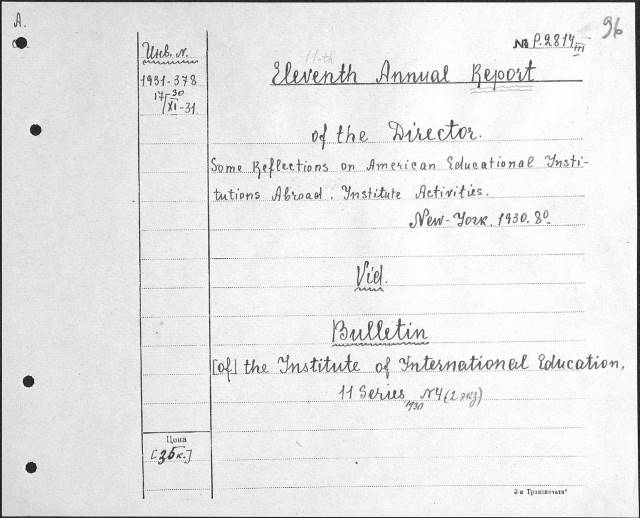 A.
96
№ P.2814 III
Инв. N.
1931-378
17 30/XI-31
11-th
Eleventh Annual Report
of the Director.
Some Reflections on American Educational Insti-
tutions Abroad. Institute Activities.
New-York. 1930. 8º.
Vid.
Bulletin
[of] the Institute of International Education,
11 Series N4 (2 экз)
1930
Цена
[35к.]
2-я Транспечати"